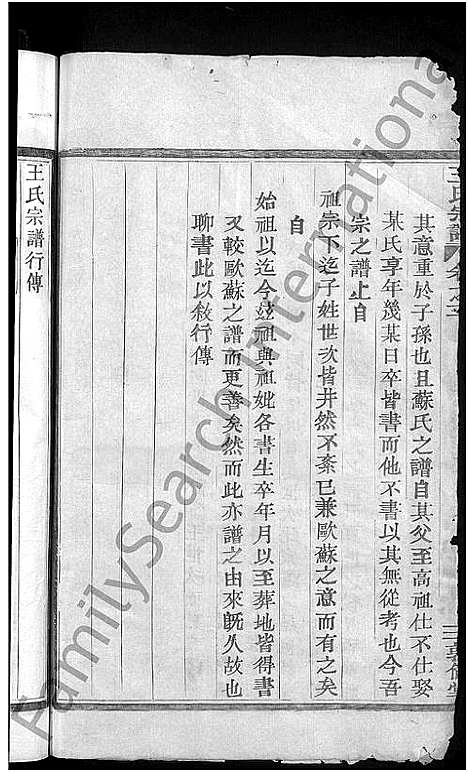 王氏宗譜
三
其意重於子孫也且蘇氏之譜自其父至高祖仕不仕娶
某氏享年幾某日卒皆書而他不書以其無從考也今吾
宗之譜上自
祖宗下迄子姓世次皆井然不紊已兼歐蘇之意而有之矣
自
始祖以迄今玆祖與祖妣各書生卒年月以至葬地皆得書
又較歐蘇之譜而更善矣然而此亦譜之由來旣久故也
聊書此以敘行傳
王氏宗譜行傳
FamilySearch International